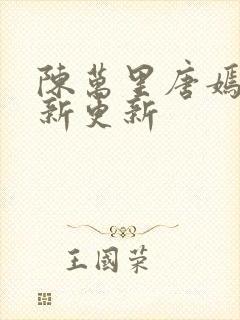 陳萬里唐嫣
新更新
王國榮